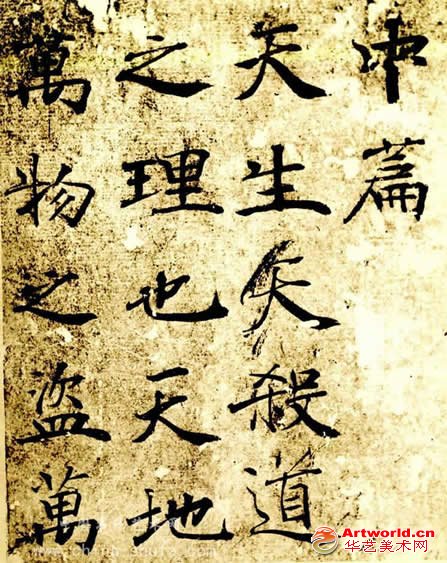 中篇
天生天殺道
之理也天地
萬物之盜萬
Artworld.cn
华艺美术网